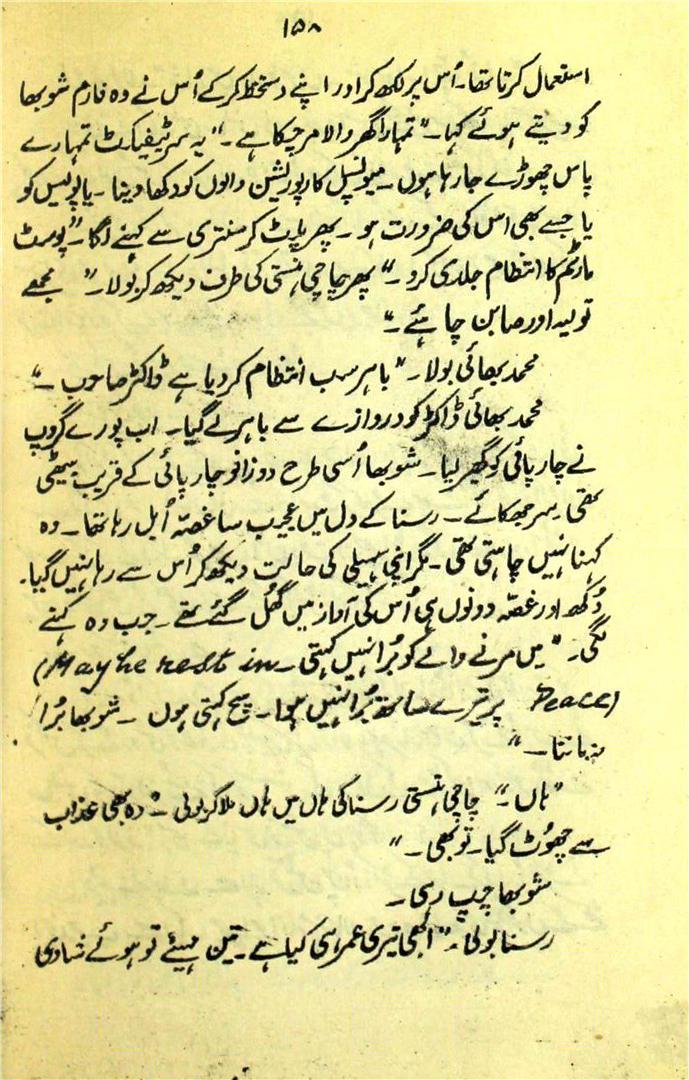 ۱۵۸
استعمال کرتا تھا۔ اُس پر لکھ کر اور اپنے دستخط کر کے اُس نے وہ فارم شوبھا
کو دیتے ہوئے کہا۔ "تمہارا گھر والا مر چکا ہے۔ "یہ سرٹیفیکٹ تمہارے
پاس چھوڑے جا رہا ہوں۔ میونسپل کارپوریشن والوں کو دکھا دینا۔ یا پولیس کو
یا جسے بھی اس کی ضرورت ہو۔ پھر پلٹ کر سنتری سے کہنے لگا۔ "پوسٹ
مارٹم کا انتظام جلدی کرو۔" پھر چاچی ہنستی کی طرف دیکھ کر بولا۔ "مجھے
تولیہ اور صابن چاہئے۔"
محمد بھائی بولا۔ "باہر سب انتظام کر دیا ہے ڈاکٹر صاحب۔"
محمد بھائی ڈاکٹر کو دروازے سے باہر لے گیا۔ اب پورے گروپ
نے چارپائی کو گھیر لیا۔ شوبھا اُسی طرح دوزانو چارپائی کے قریب بیٹھی
تھی۔ سر جھکائے۔ رسنا کے دل میں عجیب سا غصّہ اُبل رہا تھا۔ وہ
کہنا نہیں چاہتی تھی۔ مگر اپنی سہیلی کی حالت دیکھ کر اُس سے رہا نہیں گیا۔
دُکھ اور غصّہ دونوں ہی اُس کی آواز میں گھُل گئے تھے۔ جب وہ کہنے
لگی۔ "میں مرنے والے کو بُرا نہیں کہتی۔ (May he rest in
Peace) پر تیرے ساتھ بُرا نہیں ہوا۔ سچ کہتی ہوں۔ شوبھا بُرا
نہ ماننا۔"
"ہاں۔" چاچی ہنستی رسنا کی ہاں میں ہاں ملا کر بولی۔ "وہ بھی عذاب
سے چھُوٹ گیا۔ تو بھی۔"
شوبھا چپ رہی۔
رسنا بولی۔ "ابھی تیری عمر ہی کیا ہے۔ تین مہینے تو ہوئے شادی